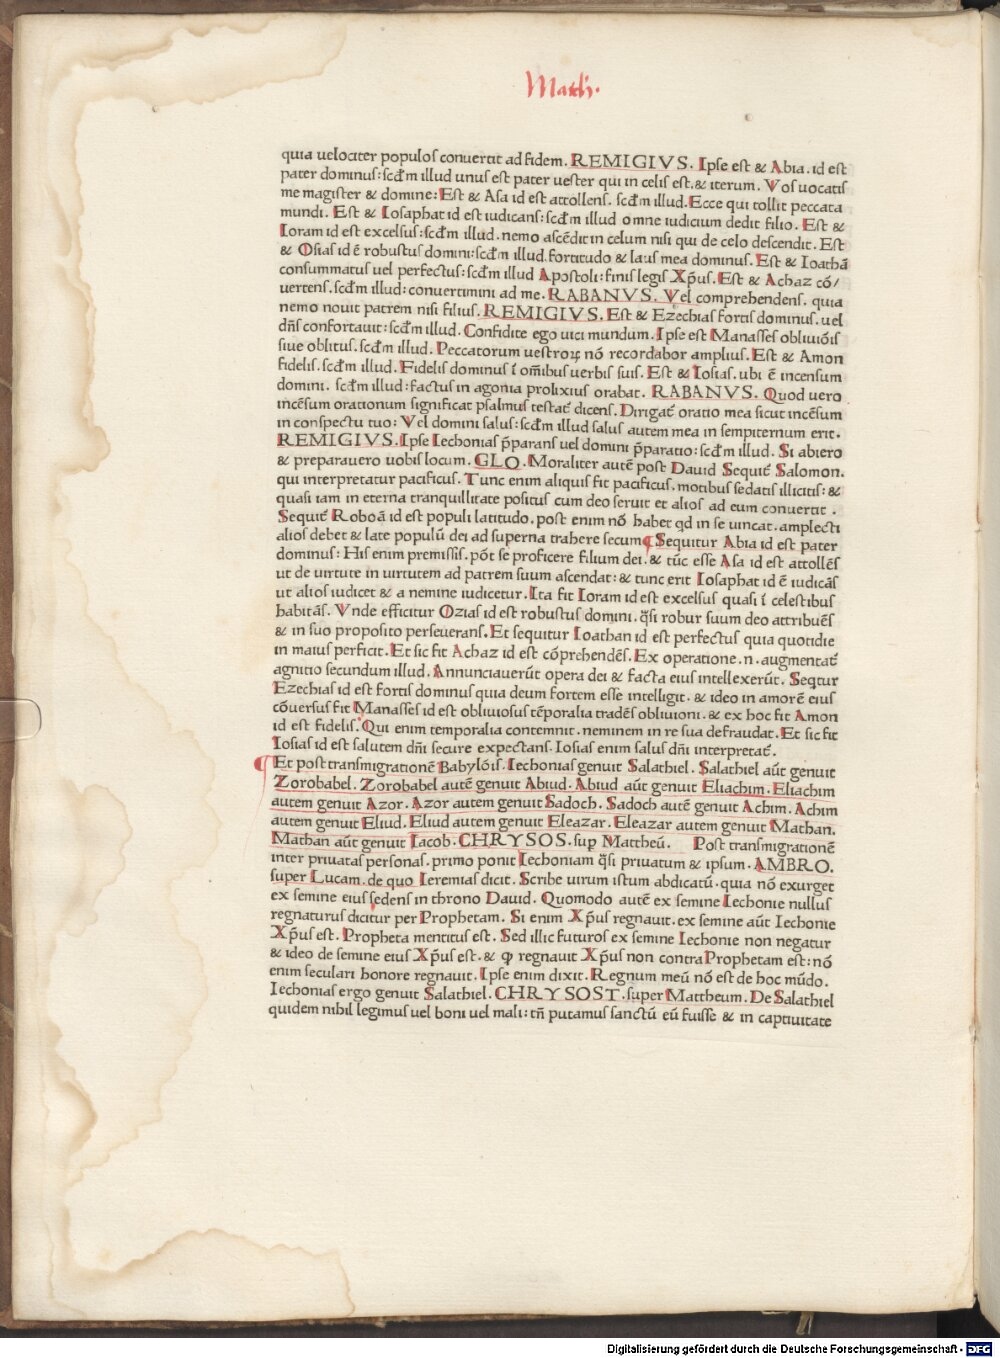 Math.
quia uelociter populos conuertit ad fidem. REMIGIVS. Ipse est & Abia. id est
pater dominus: scđm illud unus est pater uester qui in celis est. & iterum. Vos uocatis
me magister & domine: Est & Asa id est attollens. scđm illud. Ecce qui tollit peccata
mundi. Est & Iosaphat id est iudicans: scđm illud omne iudicium dedit filio. Est &
Ioram id est excelsus: scđm illud. nemo ascēdit in celum nisi qui de celo descendit. Est
& Osias id ē robustus domini: scđm illud. fortitudo & laus mea dominus. Est & Ioathā
consummatus uel perfectus: scđm illud Apostoli: finis legis Xp̄us. Est & Achaz cō/
uertens. scđm illud: conuertimini ad me. RABANVS. Vel comprehendens. quia
nemo nouit patrem nisi filius. REMIGIVS. Est & Ezechias fortis dominus. uel
dn̄s confortauit: scđm illud. Confidite ego uici mundum. Ipse est Manasses obliuiōis
siue oblitus. scđm illud. Peccatorum uestroꝝ nō recordabor amplius. Est & Amon
fidelis. scđm illud. Fidelis dominus ī om̄ibus uerbis suis. Est & Iosias. ubi ē incensum
domini. scđm illud: factus in agonia prolixius orabat. RABANVS. Quod uero
incēsum orationum significat psalmus testat᷑ dicens. Dirigat᷑ oratio mea sicut incēsum
in conspectu tuo: Vel domini salus: scđm illud salus autem mea in sempiternum erit.
REMIGIVS. Ipse Iechonias p̄parans uel domini p̄paratio: scđm illud. Si abiero
& preparauero uobis locum. GLO. Moraliter autē post Dauid Sequit᷑ Salomon.
qui interpretatur pacificus. Tunc enim aliquis fit pacificus. motibus sedatis illicitis: &
quasi iam in eterna tranquillitate positus cum deo seruit et alios ad eum conuertit.
Sequit᷑ Roboā id est populi latitudo. post enim nō habet qd in se uincat. amplecti
alios debet & late populū dei ad superna trahere secum ¶ Sequitur Abia id est pater
dominus: His enim premissis. pōt se proficere filium dei. & tūc esse Asa id est attollēs
ut de uirtute in uirtutem ad patrem suum ascendat: & tunc erit Iosaphat id ē iudicās
ut alios iudicet & a nemine iudicetur. Ita fit Ioram id est excelsus quasi ī celestibus
habitās. Vnde efficitur Ozias id est robustus domini. q̄si robur suum deo attribuēs
& in suo proposito perseuerans. Et sequitur Ioathan id est perfectus quia quotidie
in maius perficit. Et sic fit Achaz id est cōprehendēs. Ex operatione. n. augmentat᷑
agnitio secundum illud. Annunciauerūt opera dei & facta eius intellexerūt. Seqtur
Ezechias id est fortis dominus quia deum fortem esse intelligit. & ideo in amorē eius
cōuersus fit Manasses id est obliuiosus tēporalia tradēs obliuioni. & ex hoc fit Amon
id est fidelis. Qui enim temporalia contemnit. neminem in re sua defraudat. Et sic fit
Iosias id est salutem dn̄i secure expectans. Iosias enim salus dn̄i interpretat᷑.
¶ Et post transmigrationē Babylōis. Iechonias genuit Salathiel. Salathiel aūt genuit
Zorobabel. Zorobabel autē genuit Abiud. Abiud aūt genuit Eliachim. Eliachim
autem genuit Azor. Azor autem genuit Sadoch. Sadoch autē genuit Achim. Achim
autem genuit Eliud. Eliud autem genuit Eleazar. Eleazar autem genuit Mathan.
Mathan aūt genuit Iacob. CHRYSOS. sup Mattheū. Post transmigrationē
inter priuatas personas. primo ponit Iechoniam q̄si priuatum & ipsum. AMBRO.
super Lucam. de quo Ieremias dicit. Scribe uirum istum abdicatū. quia nō exurget
ex semine eius sedens in throno Dauid. Quomodo autē ex semine Iechonie nullus
regnaturus dicitur per Prophetam. Si enim Xp̄us regnauit. ex semine aūt Iechonie
Xp̄us est. Propheta mentitus est. Sed illic futuros ex semine Iechonie non negatur
& ideo de semine eius Xp̄us est. & ꝙ regnauit Xp̄us non contra Prophetam est: nō
enim seculari honore regnauit. Ipse enim dixit. Regnum meū nō est de hoc mūdo.
Iechonias ergo genuit Salathiel. CHRYSOST. super Mattheum. De Salathiel
quidem nihil legimus uel boni uel mali: tn̄ putamus sanctū eū fuisse & in captiuitate
Digitalisierung gefördert durch die Deutsche Forschungsgemeinschaft - DFG